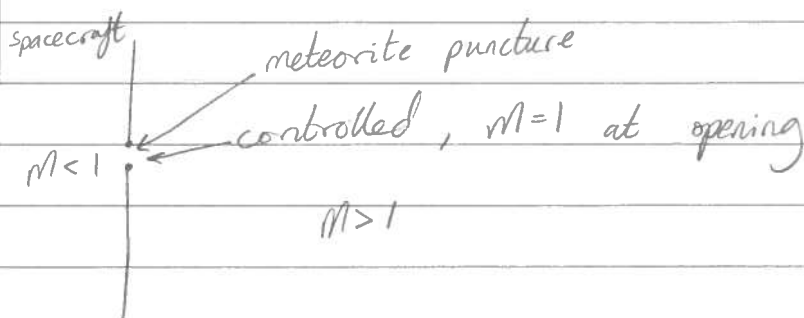 spacecraft
meteorite puncture
controlled, M=1 at opening
M<1
M>1